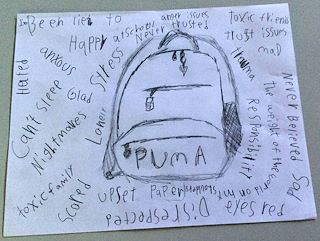 Im Been lied to
anger issues
toxic friends
Happy at school
Never trusted
trust issues
mad
anxous
Stress
Trauma
Hated
Can't sleep
Glad
Never Believed
The weight of the world on my
Responsibility
Nightmares
Loner
Sad
PUMA
toxic family
Scored
upset
Paper
Disrespected
eyes red